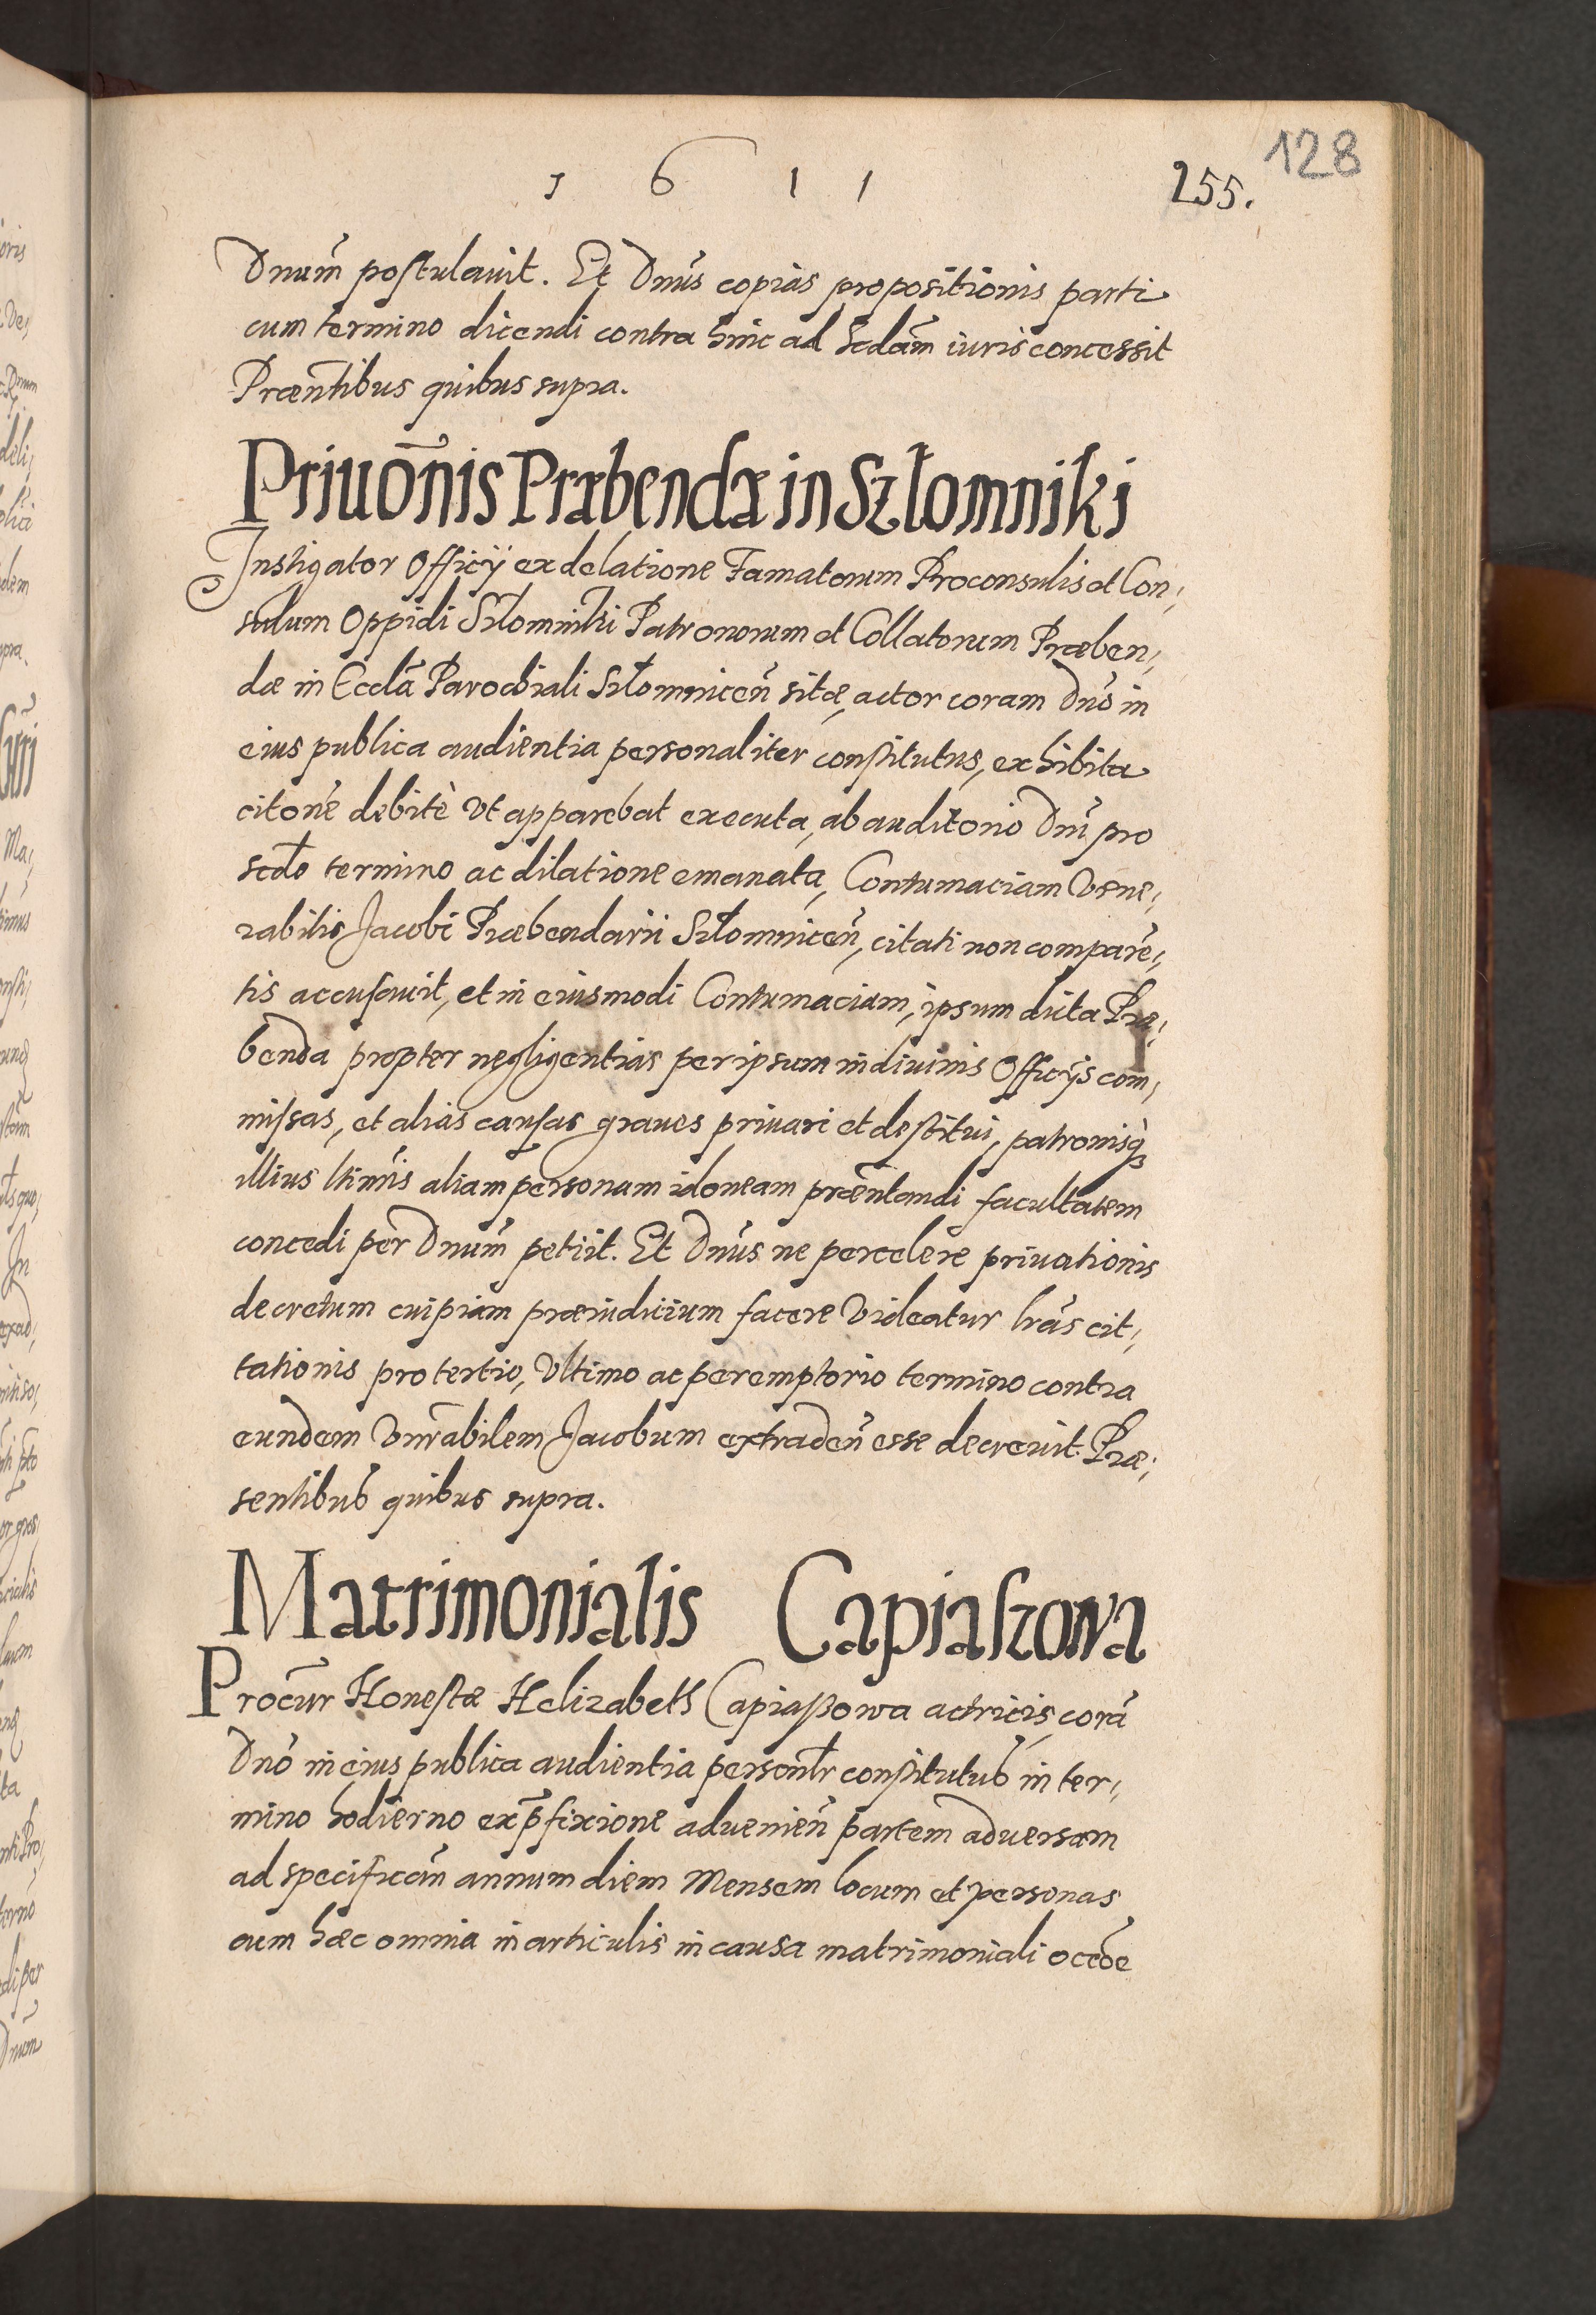 1 6 1 1
255.
128
Dnum̃ postulauit. Et Dnus̃ copias propositionis parti
cum termino dicendi contra hinc ad Scdam̃ iuris concessit
Præñtibus quibus supra.
Priuōnis Præbendæ in Szłomniki
Instigator Officÿ ex delatione Famatorum Proconsulis et Con,
sulum Oppidi Szłomniki Patronorum et Collatorum Præben,
dæ in Eccła Parochiali Szłomniceñ sitæ, actor coram Dño in
eius publica audientia personaliter constitutus, exhibita
citoñe debitè vt apparebat executa, ab auditorio Dñi pro
scdo termino ac dilatione emanata, Contumaciam Vene,
rabilis Jacobi Præbendarii Szłomniceñ, citati non comparē,
tis accusauit, et in eiusmodi Contumaciam, ipsum dicta Præ,
benda propter negligentias per ipsum in diuinis Officÿs com,
missas, et alias causas graues priuari et destitui, patronisq̃
illius ltimis̃ aliam personam idoneam præñtandi facultatem
concedi per Dnum̃ petiit. Et Dnus̃ ne percelere priuationis
decretum cuipiam præiudicium facere videatur lras̃ cit,
tationis pro tertio, vltimo ac peremptorio termino contra
eundem Vnrabilem̃ Jacobum extradeñ esse decreuit. Præ,
sentibus quibus supra.
Matrimonialis Capiaszowa
Procur̃ Honestæ Helizabeth Capiaßowa actricis, corā
Dño in eius publica audientia personlr̃ constitutus in ter,
mino hodierno ex p̃fixione aduenieñ partem aduersam
ad specificañ annum diem Mensem locum et personas
cum hæc omnia in articulis in causa matrimoniali